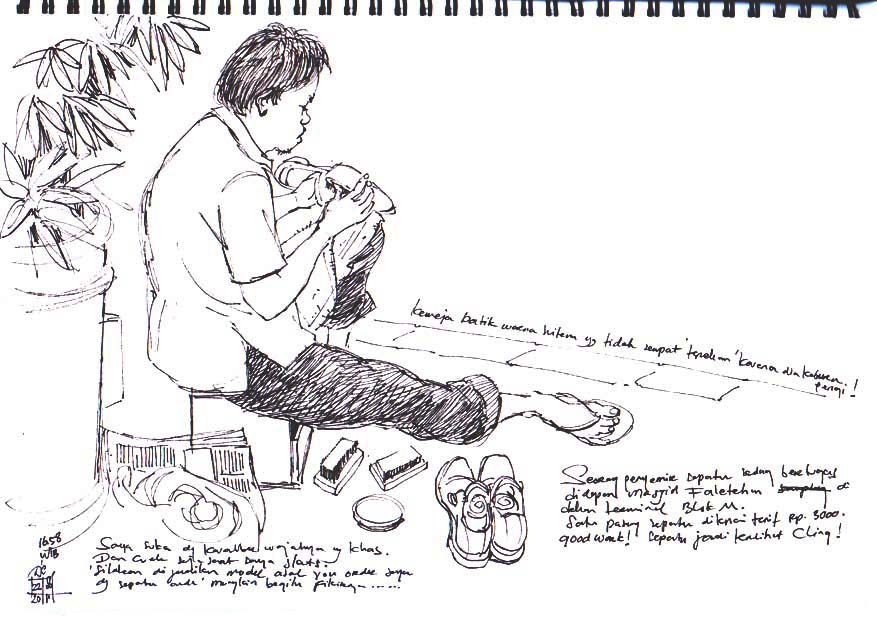 kemeja batik warna hitam yg tidak sempat karena dia keburu
pergi!
Seorang penyemir sepatu sedang bertugas
didepan Masjid Faletehan di
dalam terminal Blok M.
Satu pasang sepatu dikenai tarif Rp. 3000.
good work! Sepatu jadi Cling!
1658
WIB
Saya suka dg wajahnya yg khas.
Dan saat saya sketsa.
'Silakan di jadikan model asal you order saya
dg sepatu anda' mungkin begitu fikirnya......
22
20